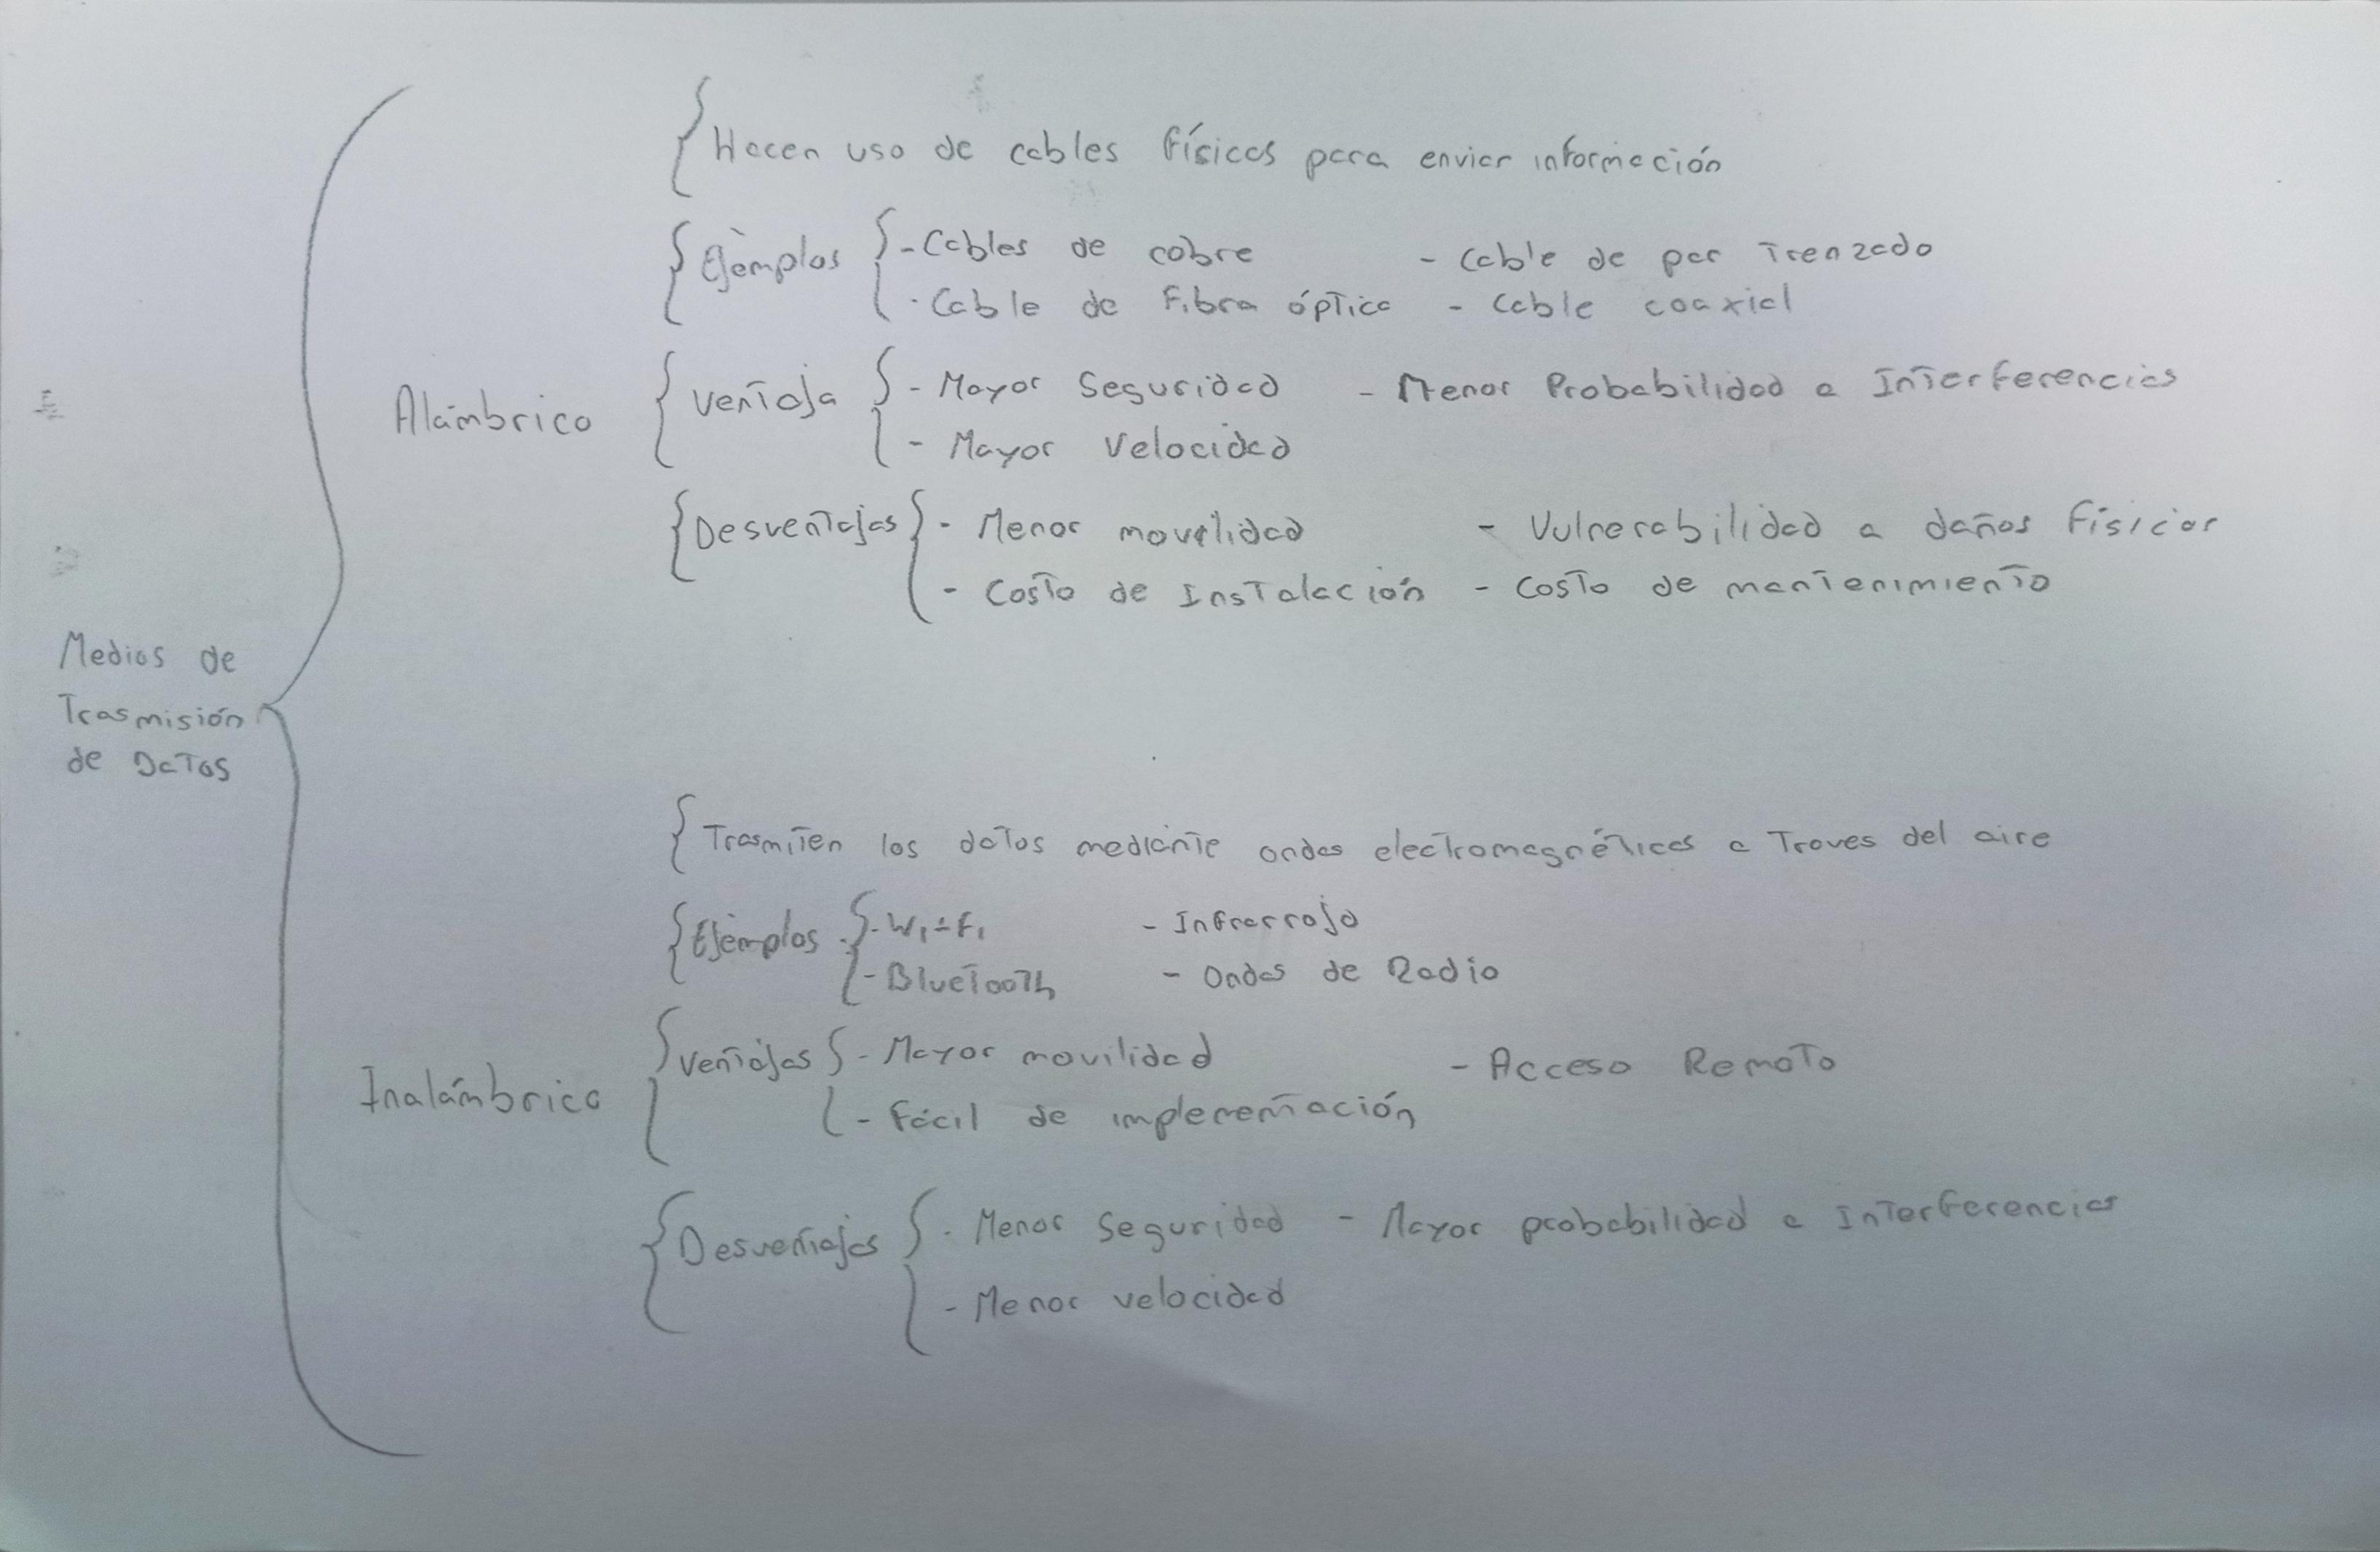 Hacen uso de cables físicos para enviar información
Ejemplos - Cables de cobre - Cable de par Trenzado
- Cable de Fibra óptica - Cable coaxial
Alámbrico Ventaja - Mayor Seguridad - Menor Probabilidad a Interferencias
- Mayor Velocidad
Desventajas - Menor movilidad - Vulnerabilidad a daños Físicos
- Costo de Instalación - Costo de mantenimiento
Medios de
Trasmisión
de Datos
Trasmiten los datos mediante ondas electromagnéticas a Traves del aire
Ejemplos - Wi-Fi - Infrarrojo
- Bluetooth - Ondas de Radio
Inalámbrico Ventajas - Mayor movilidad - Acceso Remoto
- Fácil de implementación
Desventajas - Menor Seguridad - Mayor probabilidad a Interferencias
- Menor velocidad